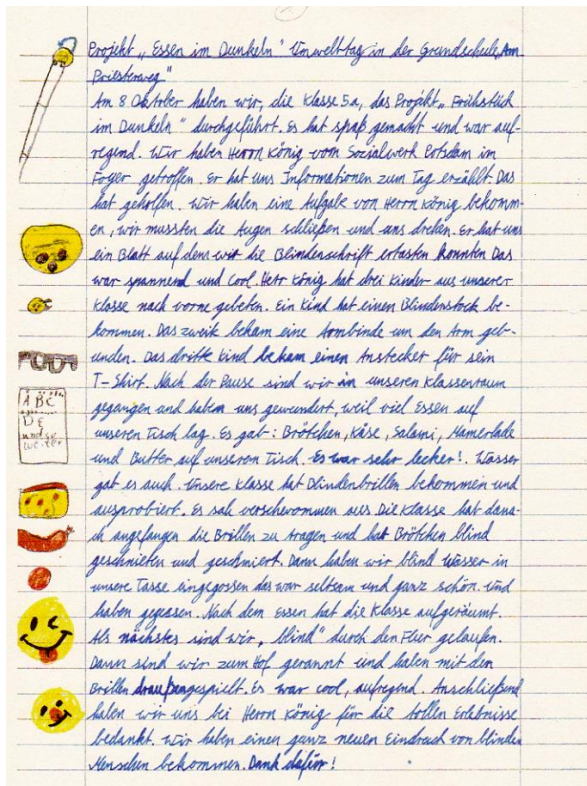 Projekt „Essen im Dunkeln" Umwelttag in der Grundschule „Am
Priesterweg"
Am 8 Oktober haben wir, die Klasse 5a, das Projekt „Frühstück
im Dunkeln" durchgeführt. Es hat spaß gemacht und war auf-
regend. Wir haben Herrn König vom Sozialwerk Potsdam im
Foyer getroffen. Er hat uns Informationen zum Tag erzählt. Das
hat geholfen. Wir haben eine Aufgabe von Herrn König bekomm-
en, wir mussten die Augen schließen und uns drehen. Er hat uns
ein Blatt auf dem wir die Blindenschrift ertasten konnten Das
war spannend und cool. Herr König hat drei Kinder aus unserer
Klasse nach vorne gebeten. Ein Kind hat einen Blindenstock be-
kommen. Das zweite bekam eine Armbinde um den Arm geb-
unden. Das dritte Kind bekam einen Anstecker für sein
T-Shirt. Nach der Pause sind wir in unseren Klassenraum
gegangen und haben uns gewundert, weil viel Essen auf
unseren Tisch lag. Es gab: Brötchen, Käse, Salami, Mamerlade
und Butter auf unseren Tisch. Es war sehr lecker!. Wasser
gab es auch. Unsere Klasse hat Blindenbrillen bekommen und
ausprobiert. Es sah verschwommen aus Die Klasse hat dana-
ch angefangen die Brillen zu tragen und hat Brötchen blind
geschnieten und geschmiert. Dann haben wir blind Wasser in
unsere Tasse eingegossen das war seltsam und ganz schön. Und
haben gegessen. Nach dem Essen hat die Klasse aufgeräumt.
Als nächstes sind wir „blind" durch den Fluer gelaufen.
Dann sind wir zum Hof gerannt und haben mit den
Brillen draußengespielt. Es war cool, aufregend. Anschließend
haben wir uns bei Herrn König für die tollen Erlebnisse
bedankt. Wir haben einen ganz neuen Eindruck von blinden
Menschen bekommen. Dank dafür!
A B C
D E
und so
weiter